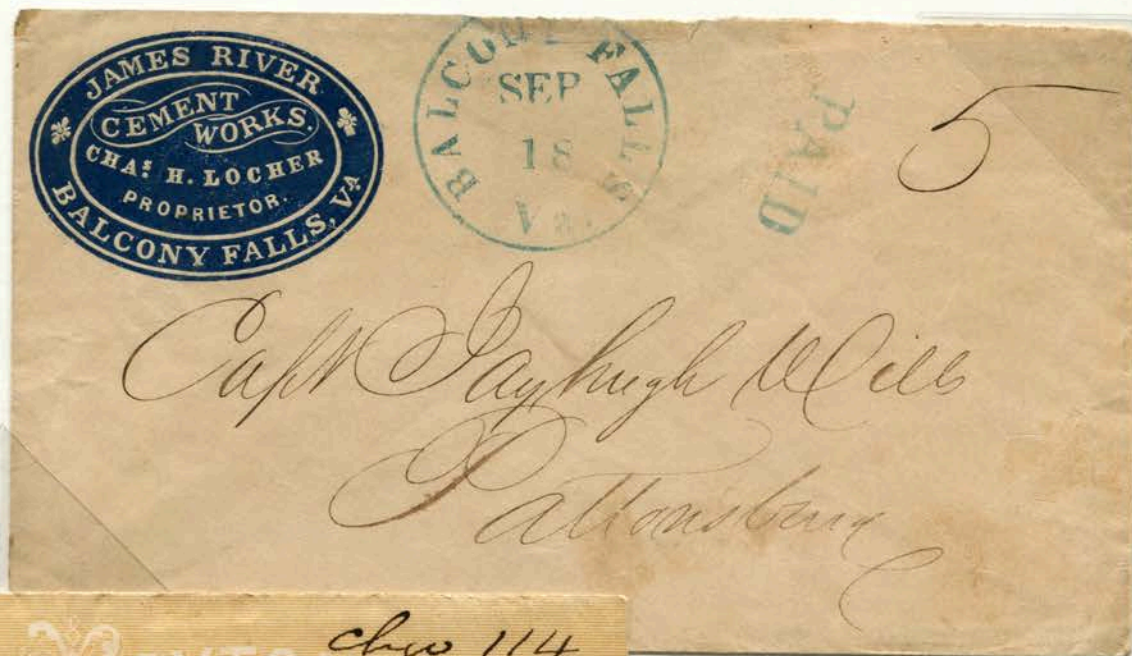 JAMES RIVER
CEMENT
WORKS.
CHAS. H. LOCHER
PROPRIETOR.
BALCONY FALLS, VA
BALCONY FALLS
SEP
18
Va.
PAID
5
Capt
Pattonsburg
114